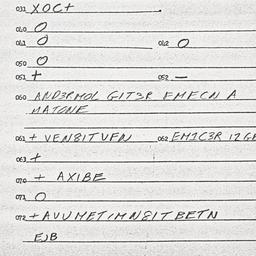 031 XOC+
040 O
041 O 042 O
050 O
051 + 052 —
060 AND3RMOL GIT3R EMFCN A
MATONE
061 + VEN8ITVFN 062 EM1C3R 12GE
063 +
070 + AXIBE
071 O
072 + AVVMET/MN8IT BETN
EJB